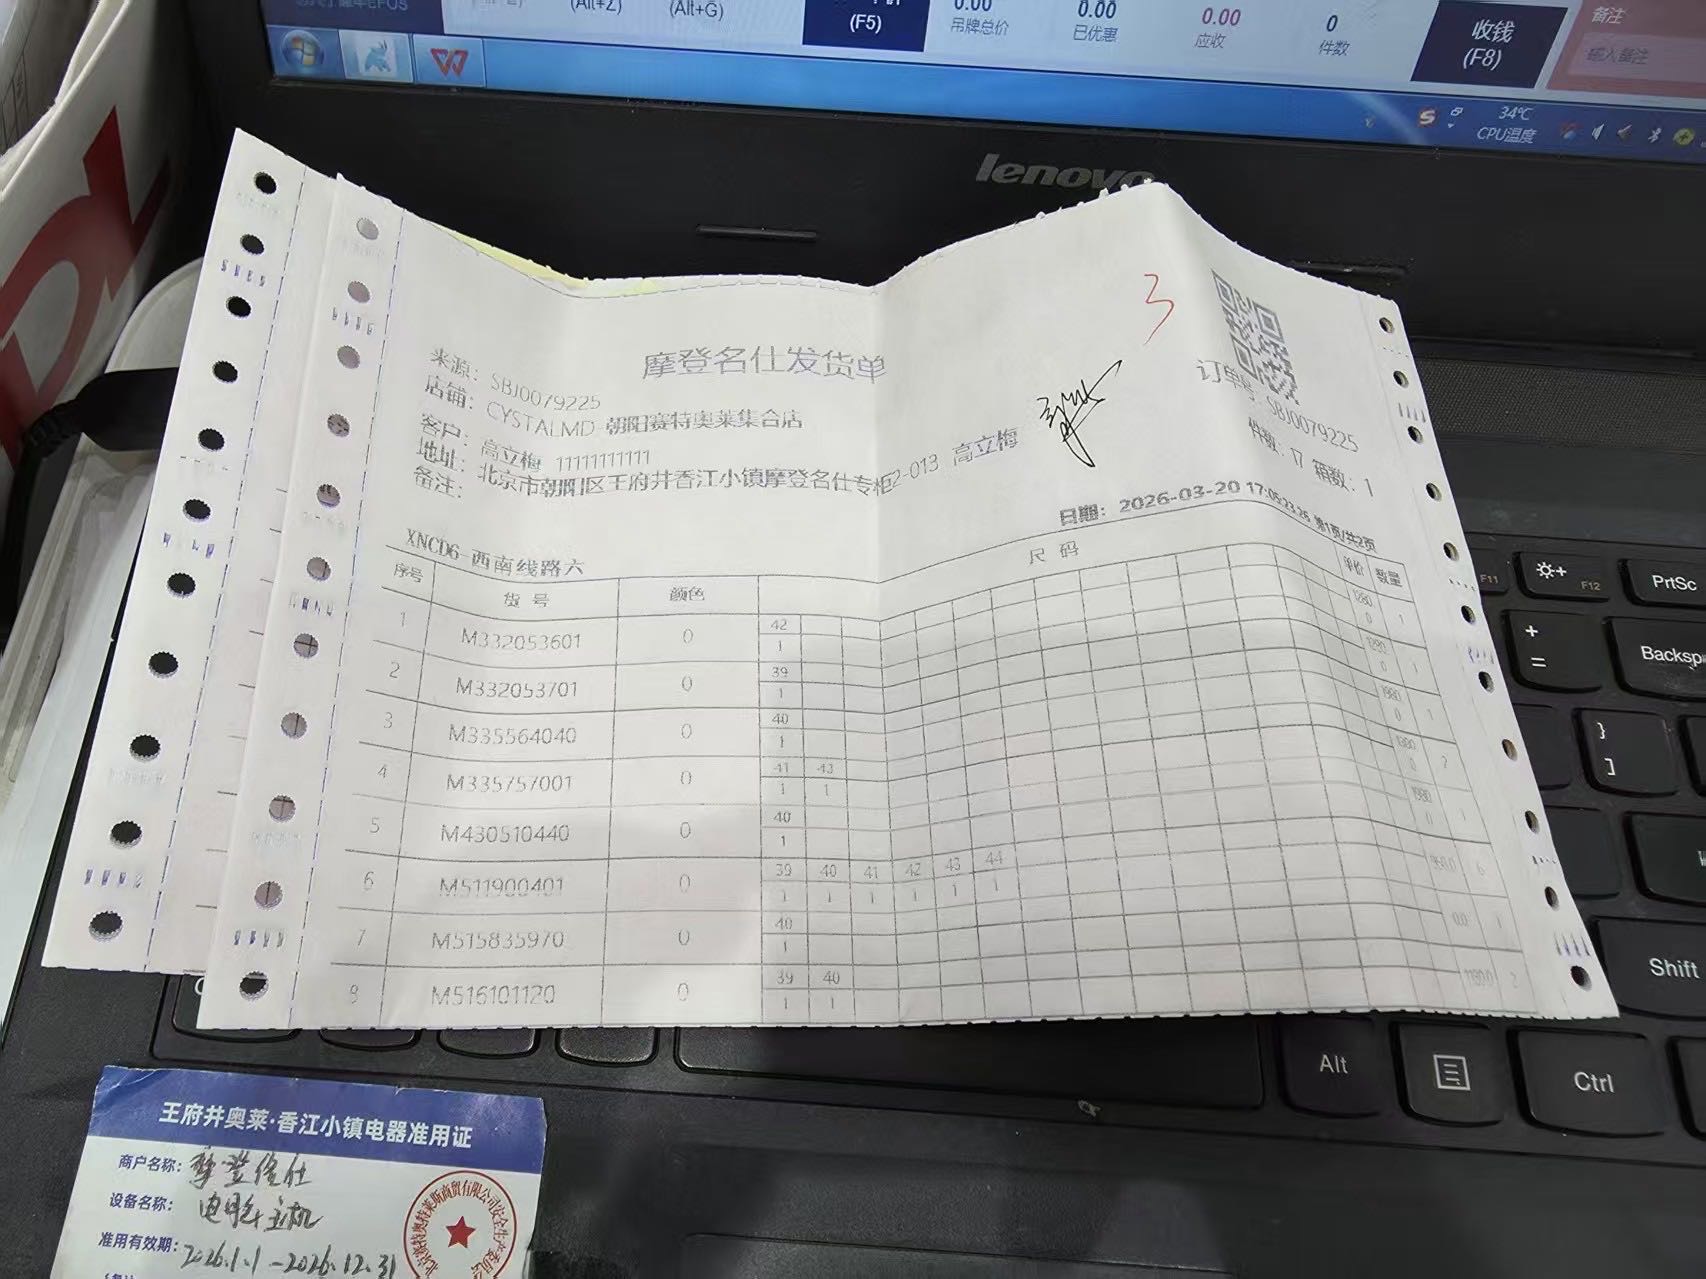 (Alt+Z)
(Alt+G)
(F5)
0.00
吊牌总价
0.00
已优惠
0.00
应收
0
件数
收钱
(F8)
备注
输入备注
34℃
CPU温度
lenovo
3
摩登名仕发货单
来源: SBJ0079225
店铺: CYSTALMD-朝阳赛特奥莱集合店
客户: 高立梅 11111111111
地址: 北京市朝阳区王府井香江小镇摩登名仕专柜2-013 高立梅
备注:
订单号: SBJ0079225
件数: 17 箱数: 1
日期: 2026-03-20 17:05:23.26 第1页/共2页
XNCD6-西南线路六
序号 货号 颜色 尺码 单价 数量
42
1 M332053601 0 1 1280 0 1
39
2 M332053701 0 1 1280 0 1
40
3 M335564040 0 1 1980 0 1
41 43
4 M335757001 0 1 1 1380 0 2
40
5 M430510440 0 1 1980 0 1
39 40 41 42 43 44
6 M511900401 0 1 1 1 1 1 1 6
40
7 M515835970 0 1 0.0 1
39 40
8 M516101120 0 1 1 1180.0 2
F11
F12
PrtSc
+
=
Backsp
}
]
Shift
Alt
Ctrl
王府井奥莱·香江小镇电器准用证
商户名称: 摩登名仕
设备名称: 电脑主机
准用有效期: 2026.1.1-2026.12.31